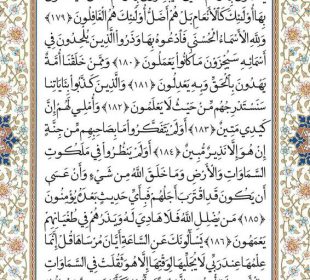 بِهَا أُولَٰئِكَ كَالْأَنْعَامِ بَلْ هُمْ أَضَلُّ أُولَٰئِكَ هُمُ الْغَافِلُونَ ﴿١٧٩﴾
وَلِلَّهِ الْأَسْمَاءُ الْحُسْنَىٰ فَادْعُوهُ بِهَا وَذَرُوا الَّذِينَ يُلْحِدُونَ فِي
أَسْمَائِهِ سَيُجْزَوْنَ مَا كَانُوا يَعْمَلُونَ ﴿١٨٠﴾ وَمِمَّنْ خَلَقْنَا أُمَّةٌ
يَهْدُونَ بِالْحَقِّ وَبِهِ يَعْدِلُونَ ﴿١٨١﴾ وَالَّذِينَ كَذَّبُوا بِآيَاتِنَا
سَنَسْتَدْرِجُهُمْ مِنْ حَيْثُ لَا يَعْلَمُونَ ﴿١٨٢﴾ وَأُمْلِي لَهُمْ إِنَّ
كَيْدِي مَتِينٌ ﴿١٨٣﴾ أَوَلَمْ يَتَفَكَّرُوا مَا بِصَاحِبِهِمْ مِنْ جِنَّةٍ
إِنْ هُوَ إِلَّا نَذِيرٌ مُبِينٌ ﴿١٨٤﴾ أَوَلَمْ يَنْظُرُوا فِي مَلَكُوتِ
السَّمَاوَاتِ وَالْأَرْضِ وَمَا خَلَقَ اللَّهُ مِنْ شَيْءٍ وَأَنْ عَسَىٰ
أَنْ يَكُونَ قَدِ اقْتَرَبَ أَجَلُهُمْ فَبِأَيِّ حَدِيثٍ بَعْدَهُ يُؤْمِنُونَ
﴿١٨٥﴾ مَنْ يُضْلِلِ اللَّهُ فَلَا هَادِيَ لَهُ وَيَذَرُهُمْ فِي طُغْيَانِهِمْ
يَعْمَهُونَ ﴿١٨٦﴾ يَسْأَلُونَكَ عَنِ السَّاعَةِ أَيَّانَ مُرْسَاهَا قُلْ إِنَّمَا
عِلْمُهَا عِنْدَ رَبِّي لَا يُجَلِّيهَا لِوَقْتِهَا إِلَّا هُوَ ثَقُلَتْ فِي السَّمَاوَاتِ